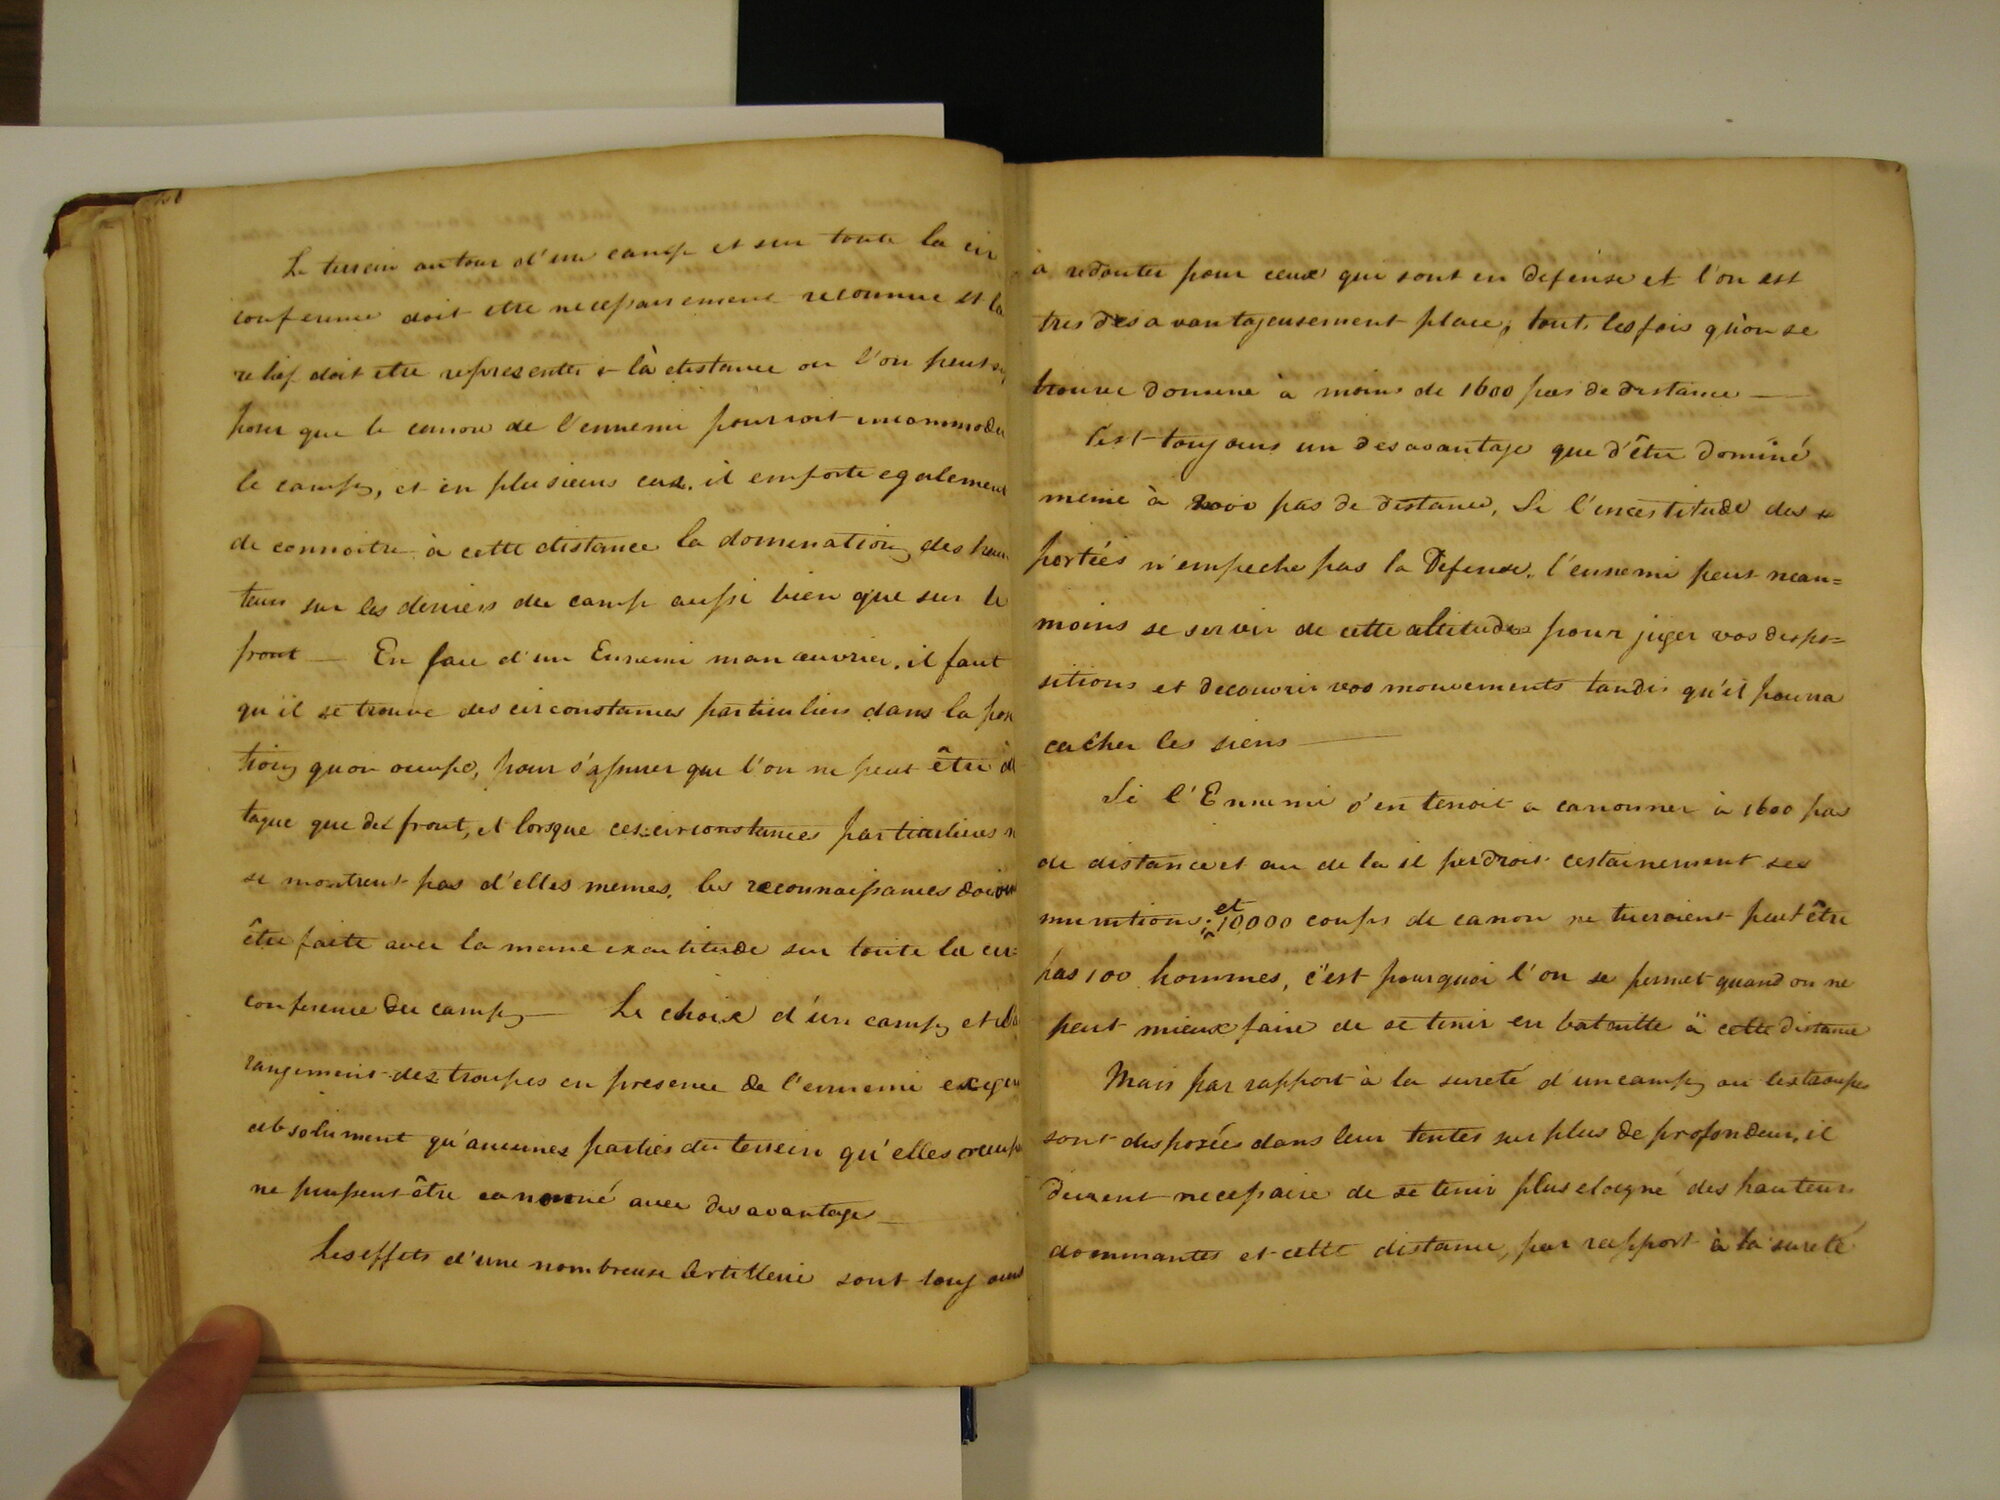 Le terrein autour d'un camp et sur toute la cir
conference doit etre necessairement reconnue et la
relief doit etre representé à la distance ou l'on peut
poser que le canon de l'ennemi pourroit incommoder
le camp, et en plusieurs cas, il emporte egalement
de connoitre à cette distance la domination des hau
teurs sur les derriers du camp aussi bien que sur le
front — En face d'un Ennemi manœuvrier, il faut
qu'il se trouve des circonstances particuliers dans la posi
tion qu'on occupe, pour s'assurer que l'on ne peut être at
taque que du front, et lorsque ces circonstances particulieres n
se montrent pas d'elles memes, les reconnaissances doivent
être faite avec la meme exactitude sur toute la cir=
conference du camp — Le choix d'un camp et l'a
rangement des troupes en presence de l'ennemi exigent
absolument qu'aucunes parties du terrein qu'elles occupe
ne puissent être canonné avec desavantage —
Les effets d'une nombreuse Artillerie sont toujours
à redouter pour ceux qui sont en defense et l'on est
tres desavantageusement place, toute les fois qu'on se
trouve domine à moins de 1600 pas de distance —
C'est toujours un desavantage que d'être dominé
meme à 2000 pas de distance, Si l'incertitude des
portées n'empeche pas la Defense, l'ennemi peut nean=
moins se servir de cette altitude pour juger vos dispo=
sitions et decouvrir vos mouvements tandis qu'il pourra
cacher les siens —
Si l'Ennemi s'en tenoit a canonner à 1600 pas
de distance et au de la il perdroit certainement ses
munitions; et 10000 coups de canon ne tueroient peut être
pas 100 hommes, c'est pourquoi l'on se permet quand on ne
peut mieux faire de se tenir en bataille à cette distance
Mais par rapport à la sureté d'un camp ou les troupes
sont disposées dans leur tentes sur plus de profondeur, il
devient necessaire de se tenir plus eloigné des hauteurs
dominantes et cette distance, par rapport à la sureté